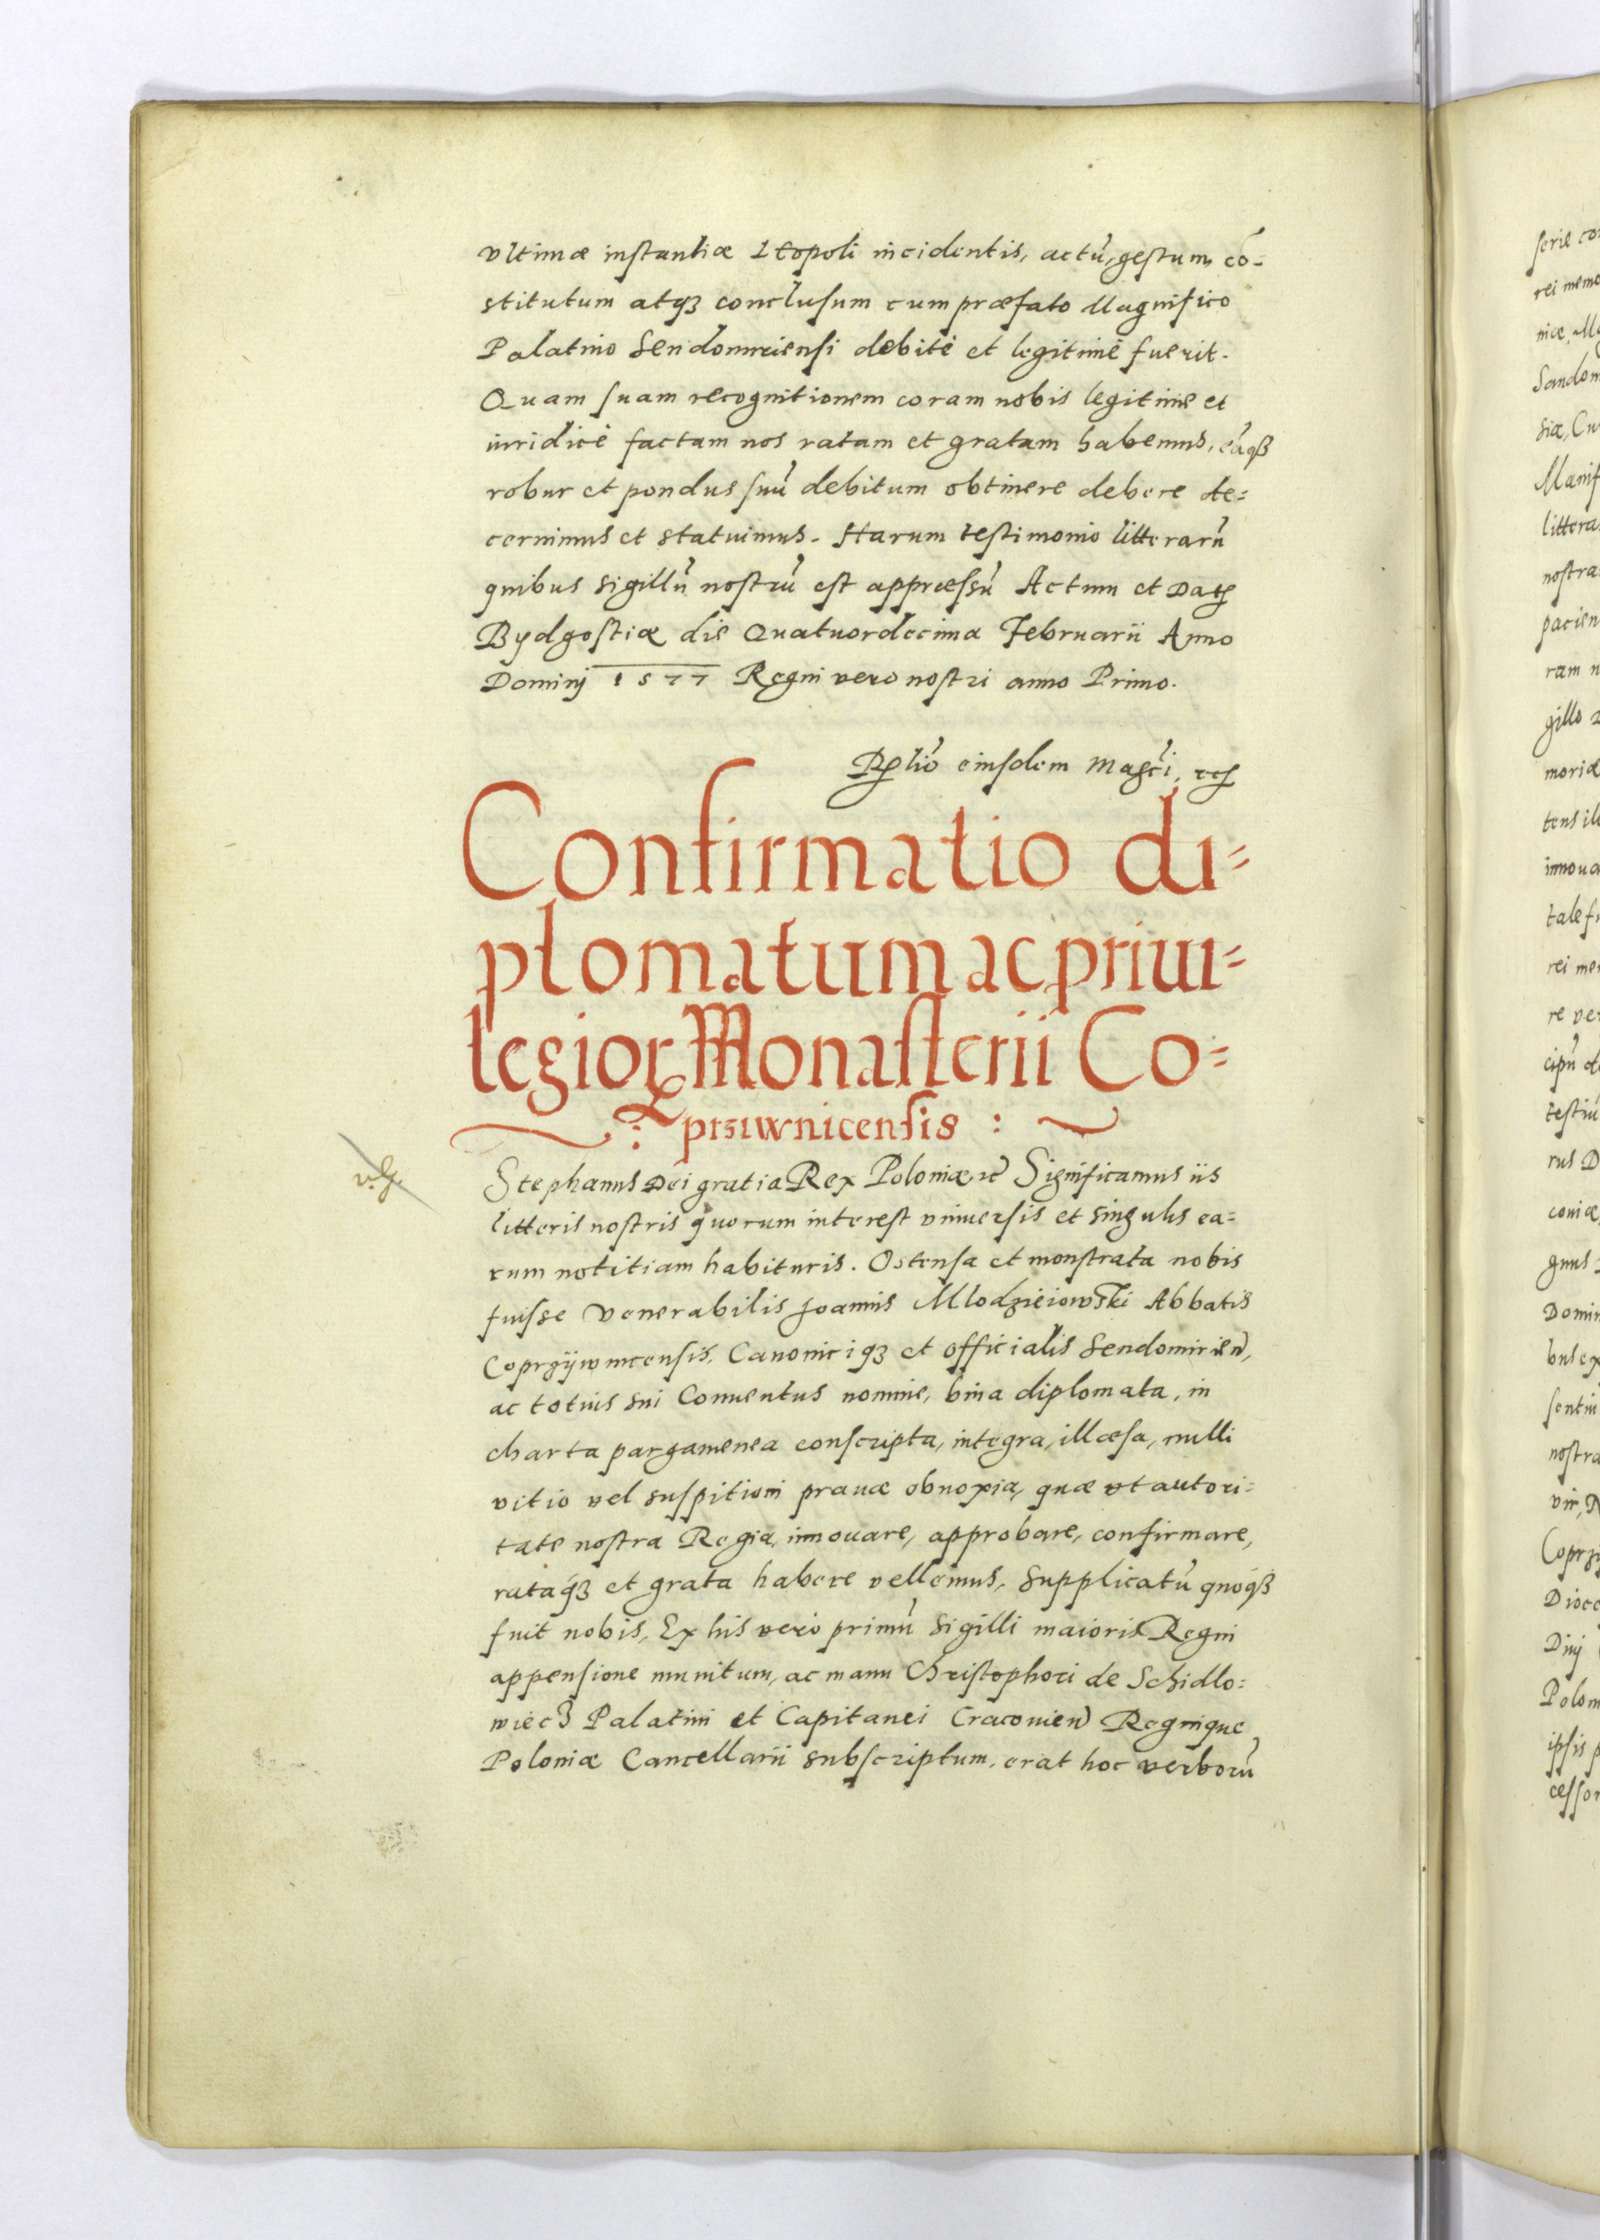 vltimæ instantiæ Leopoli incidentis, actũ, gestum, cõ-
stitutum atq3 conclusum cum præfato Magnifico
Palatino Sendomiriensi debitè et legitimè fuerit.
Quam suam recognitionem coram nobis legitimè et
iuridicè factam nos ratam et gratam habemus, eãq3
robur et pondus suũ debitum obtinere debere de=
cernimus et statuimus. Harum testimonio litterarũ
quibus sigillũ nostrũ est appressũ Actum et Dat
Bydgostiæ die Quatuordecima Februarii Anno
Dominj 1577 Regni vero nostri anno Primo.
eiusdem
Confirmatio di=
plomatum ac priui=
legiorꝝ Monasterii Co=
: przıwnicensis :
Stephanus Dei gratia Rex Poloniæ Significamus iis
litteris nostris quorum interest vniuersis et singulis ea=
rum notitiam habituris. Ostensa et monstrata nobis
fuisse Venerabilis Joannis Mlodzieiowski Abbatis
Coprzÿwnicensis, Canonici q3 et officialis Sendomirień,
ac totius sui Conuentus nomine, bina diplomata, in
charta pargamenea conscripta, integra, illæsa, nulli
vitio vel suspitioni prauæ obnoxia, quæ vt autori=
tate nostra Regia, innouare, approbare, confirmare,
rataq3 et grata habere vellemus, supplicatũ quoq3
fuit nobis, Ex his vero primũ sigilli maioris Regni
appensione munitum, ac manu Christophori de Schidlo=
wiecz Palatini et Capitanei Cracovień Regnique
Poloniæ Cancellarii subscriptum, erat hoc verborũ